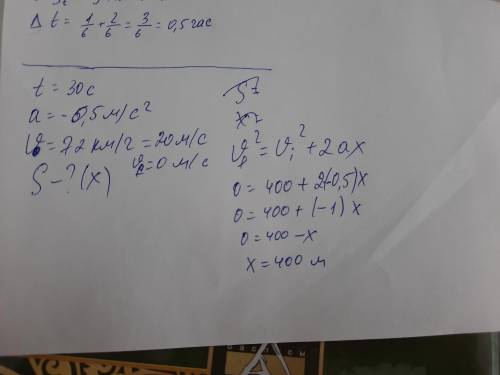 Δ t = 1/6 + 2/6 = 3/6 = 0,5 час
t = 30 с
a = -0,5 м/с²
V₀ = 72 км/г = 20 м/с
V₂ = 0 м/с
S - ? (x)
V₂² = V₁² + 2ax
0 = 400 + 2(-0,5)x
0 = 400 + (-1) x
0 = 400 - x
x = 400 м